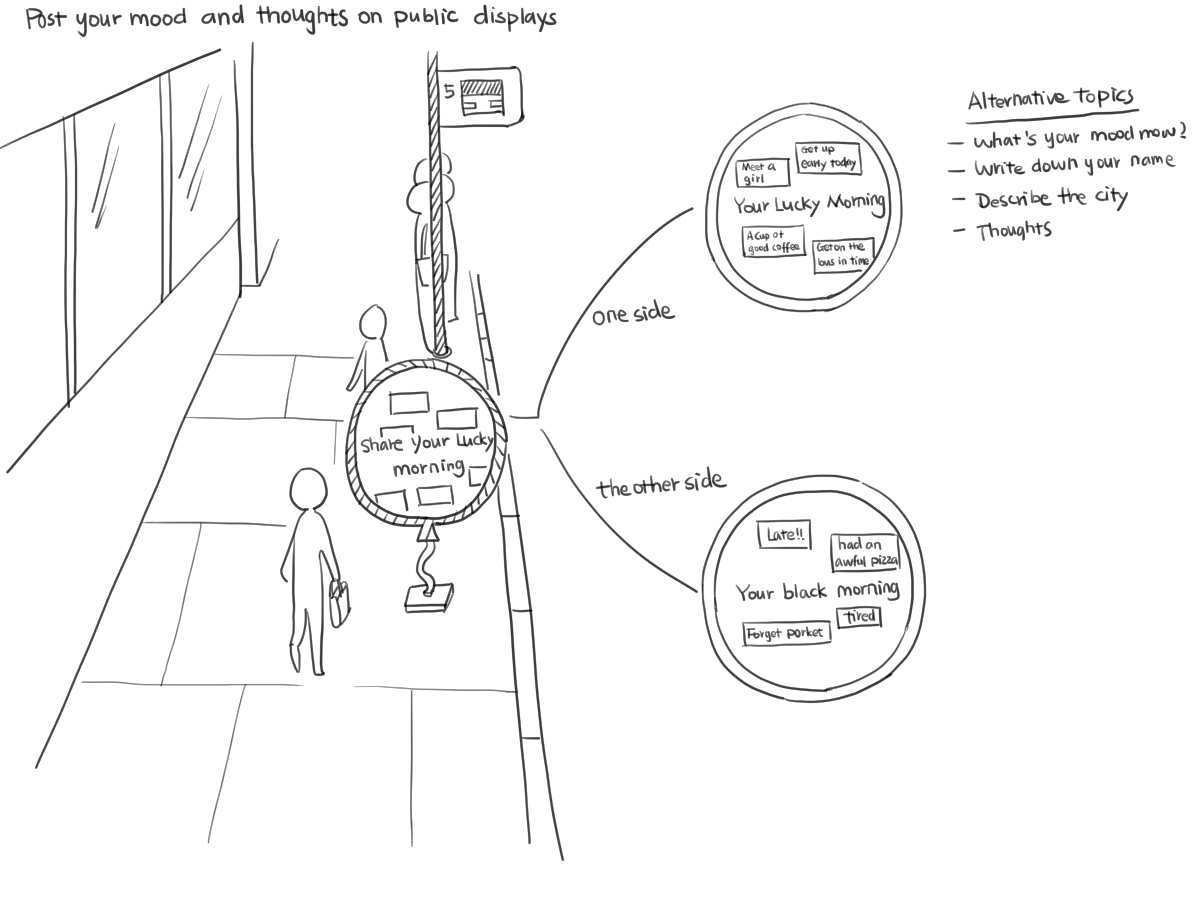 Post your mood and thoughts on public displays
5
Share Your Lucky
morning
one side
the other side
Meet a
girl
Get up
early today
Your Lucky Morning
A Cup of
good coffee
Get on the
bus in time
Late!!
had an
awful pizza
Your black morning
tired
Forget porket
Alternative Topics
- What's your mood now?
- Write down your name
- Describe the city
- Thoughts